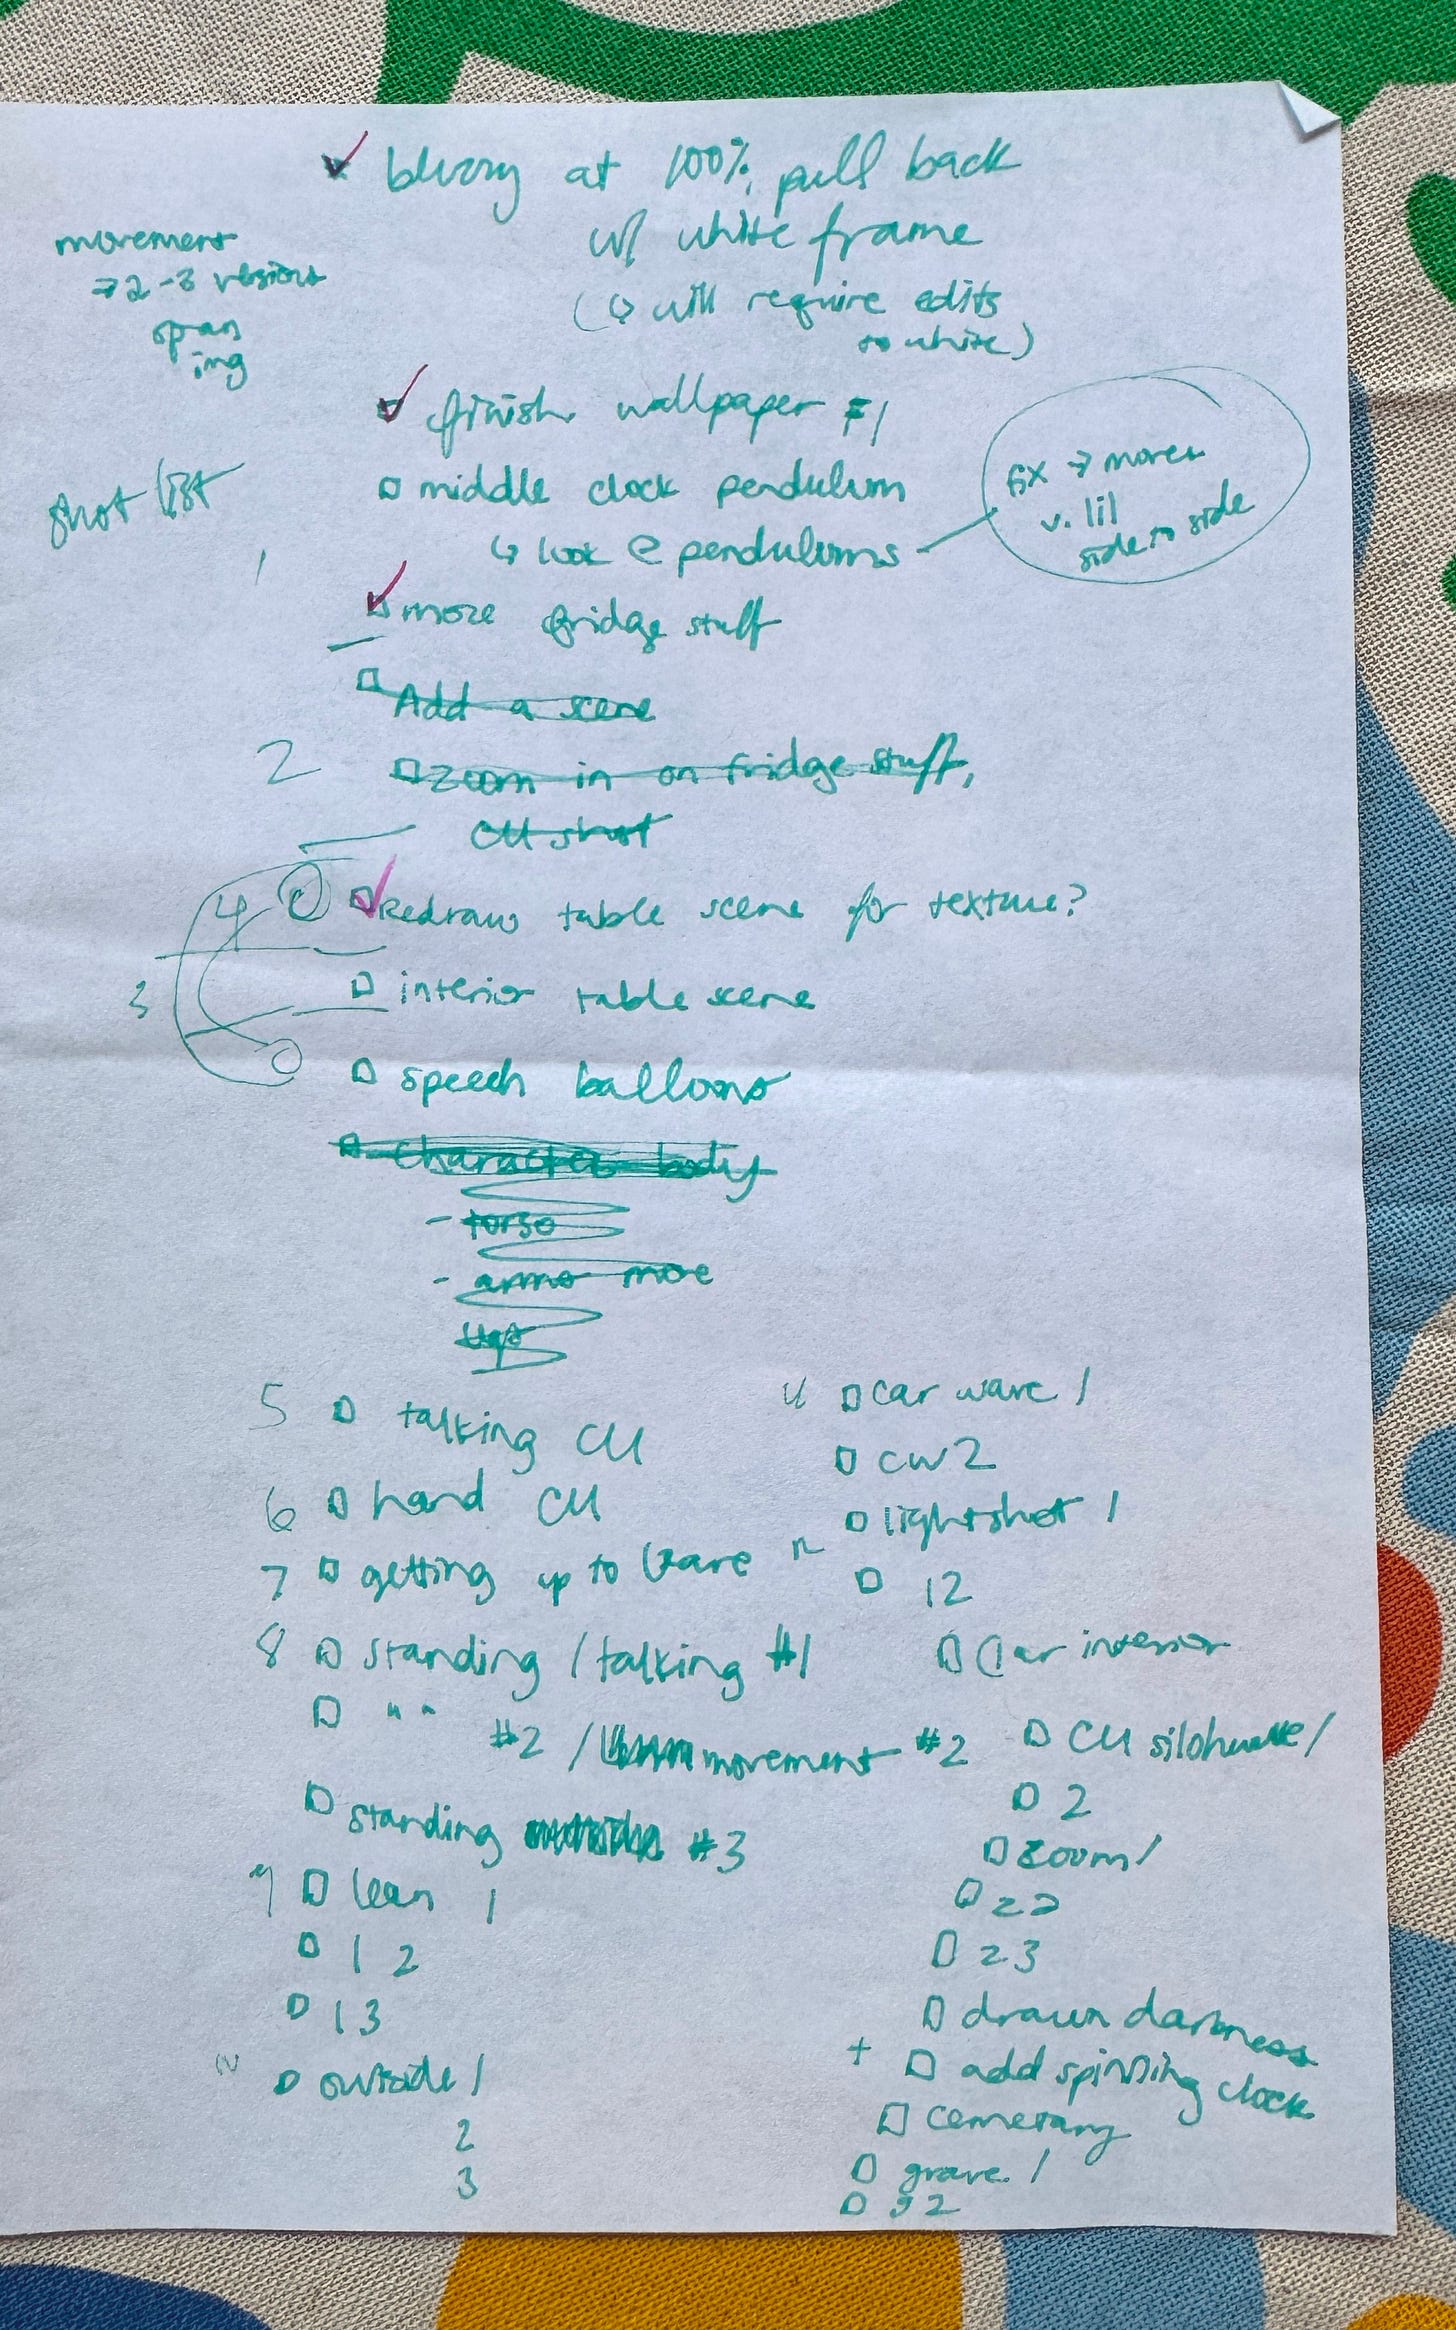 blurry at 100%, pull back
w/ white frame
(↳ will require edits
to white)
movement
→ 2-3 versions
shot list
finish wallpaper #1
middle clock pendulum
↳ look @ pendulums
→ moves
v. lil
side to side
1
more fridge stuff
Add a scene
2
Zoom in on fridge stuff,
CU shot
4
Redraw table scene for texture?
3
interior table scene
speech balloons
Character body
- torso
- arms more
5 talking CU
6 hand CU
7 getting up to leave
8 standing / talking #1
" " #2 / movement #2
standing #3
9 lean 1
l 2
l 3
outside 1
2
3
car wave 1
cw 2
lightshot 1
l2
Car interior
CU silohuette 1
2
zoom 1
z2
z3
drawn darkness
+ add spinning clock
cemetary
grave 1
g2